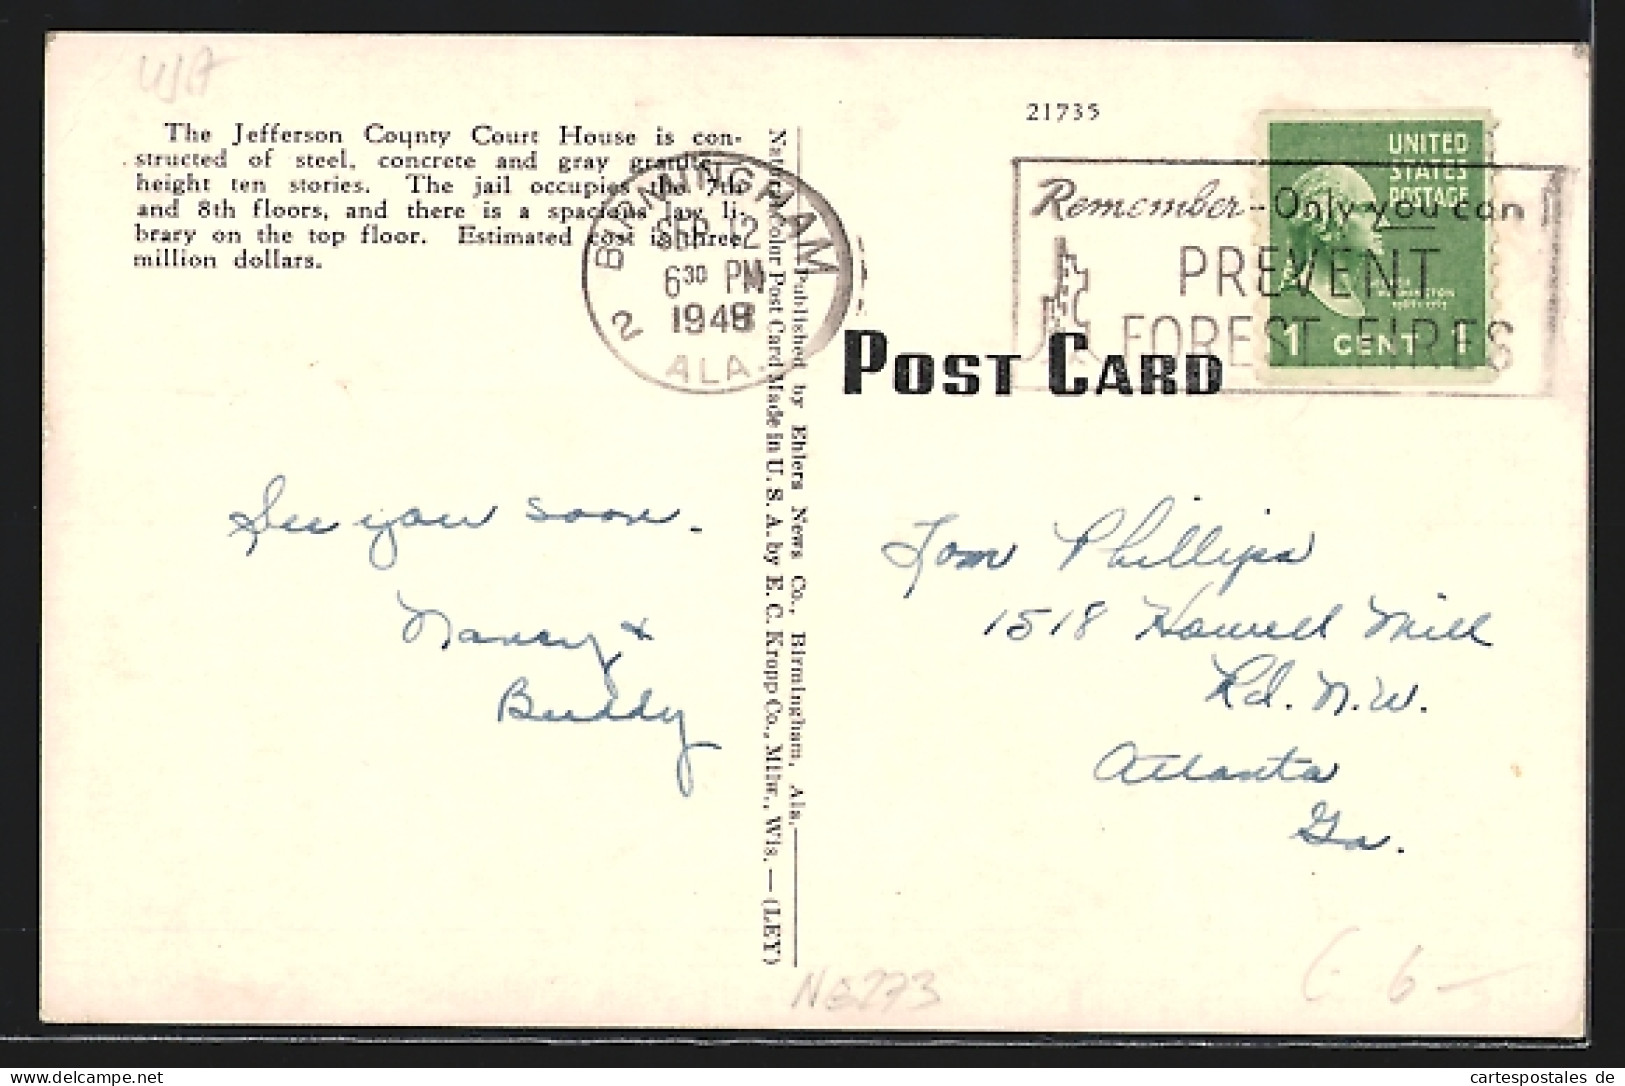 The Jefferson County Court House is con-
structed of steel, concrete and gray granite,
height ten stories. The jail occupies the 7th
and 8th floors, and there is a spacious law li-
brary on the top floor. Estimated cost is three
million dollars.
BIRMINGHAM
SEP 12
6 30 PM
1948
2 ALA.
See you soon.
Nancy +
Buddy
Published by Ehlers News Co., Birmingham, Ala.
Natural Color Post Card Made in U. S. A. by E. C. Kropp Co., Milw., Wis. — (LEY)
21735
Remember - Only you can
PREVENT
FOREST FIRES
UNITED
STATES
POSTAGE
WASHINGTON
1 CENT 1
POST CARD
Tom Phillips
1518 Howell Mill
Rd. N.W.
Atlanta
Ga.
6-
delcampe.net
cartespostales de